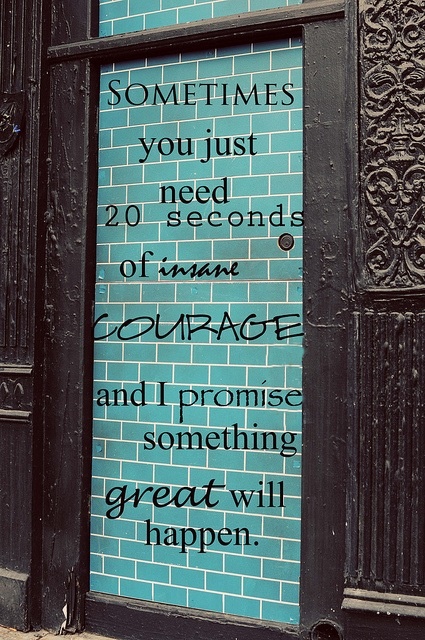 SOMETIMES
you just
need
20 seconds
of insane
COURAGE
and I promise
something
great will
happen.